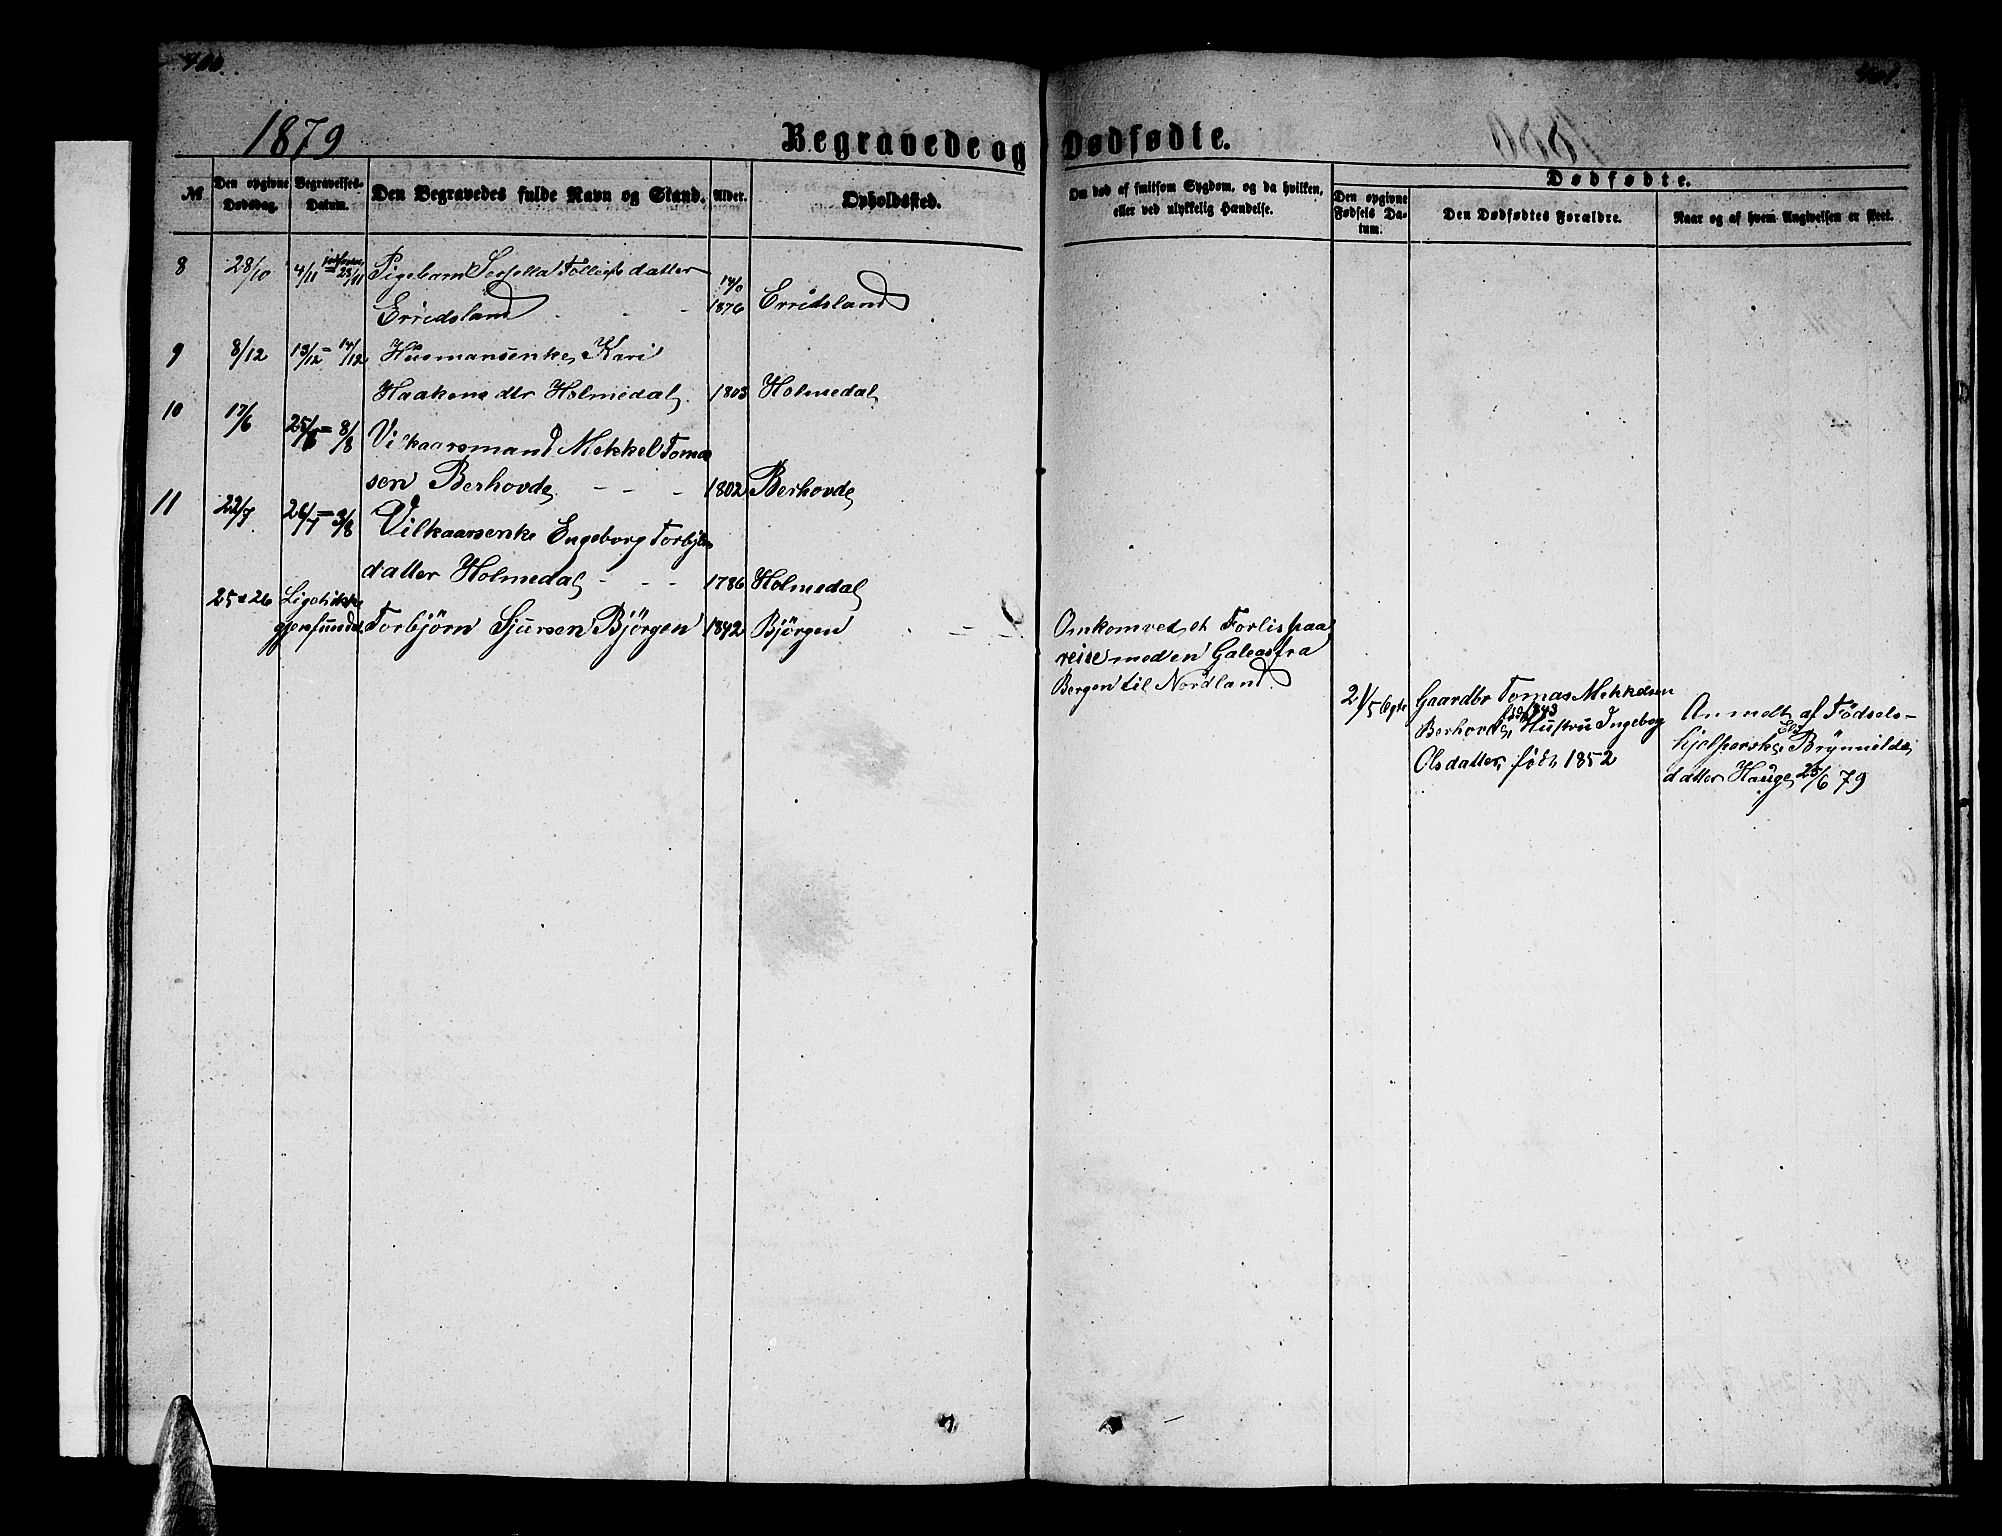 400.
401.
1879
Begravede og Dødfødte.
№
Den opgivne Dødsdag.
Begravelses-Datum.
Den Begravedes fulde Navn og Stand.
Alder.
Opholdssted.
Om død af smitsom Sygdom, og da hvilken, eller ved ulykkelig Hændelse.
Dødfødte.
Den opgivne Fødsels Da-tum.
Den Dødfødtes Forældre.
Naar og af hvem Angivelsen er skeet.
8 28/10 4/11 23/11 Pigebarn datter
Erridsland 1876 Erridsland
9 8/12 13/12 = 14/12 Husmansenke, Kari
Haakens dtr Holmedal 1803 Holmedal
10 17/6 8/8 Vilkaarsmand Mekkel Tomas
sen Berhovde, - - - 1802 Berhovde
11 22/7 26/7 = 3/8 Vilkaarsenke Engeborg Torbjörns
datter Holmedal - - - 1786 Holmedal
25 26 Liget ikke
gjenfundet Torbjörn Sjursen Björgen 1842 Björgen - -
Omkom ved et Forlis paa
reise med en Galeas fra
Bergen til Nordland.
21/5 Egte Gaardbr Tomas Mekkelsen
Berhovde, født 1843 Hustru Ingeborg
Olsdatter, født 1852
Anmeldt af Födsels-
hjelperske Brynnilds
datter Hauge, 25/6 79